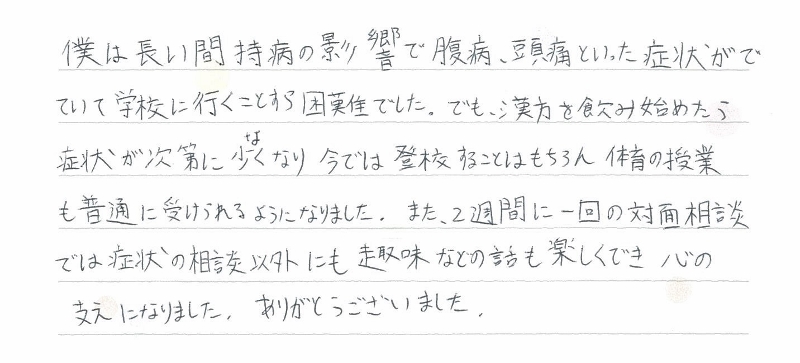 僕は長い間持病の影響で腹病、頭痛といった症状がで
ていて学校に行くことすら困難でした。でも、漢方を飲み始めたら
症状が次第に少くなり今では登校することはもちろん体育の授業
も普通に受けられるようになりました。また、2週間に一回の対面相談
では症状の相談以外にも趣味などの話も楽しくでき心の
支えになりました。ありがとうございました。